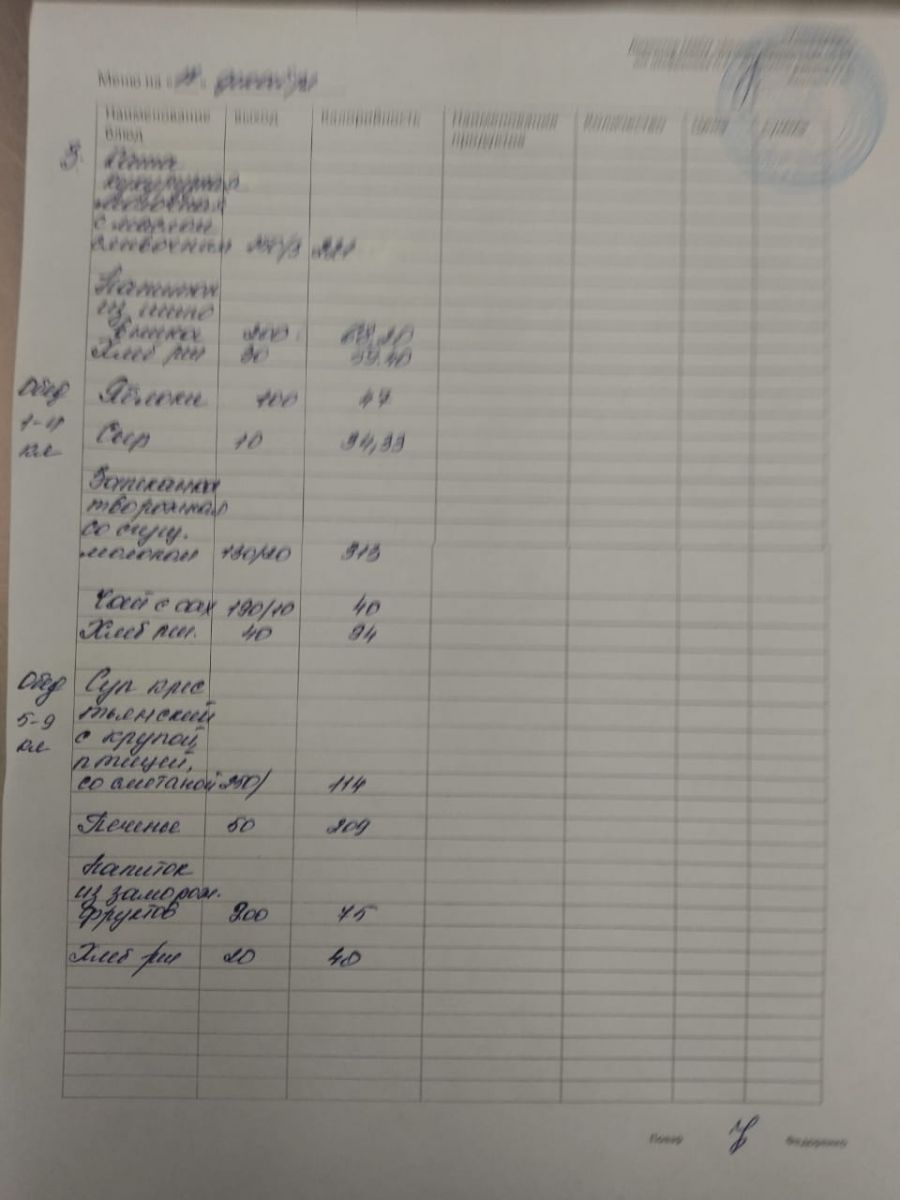 Меню на «
Наименование блюд выход калорийность Наименование продуктов Количество Цена Сумма
З.
Каша
кукурузная
молочная
с маслом
сливочным 250/5 221
Напиток
из шипо
вника 200 68,20
Хлеб рж 30 59.40
Обед
1-4
кл
Яблоки 100 47
Сыр 10 34,33
Запеканка
творожная
со сгущ.
молоком 130/20 313
Чай с сах 190/10 40
Хлеб рж. 40 94
Обед
5-9
кл
Суп крес
тьянский
с крупой
птицей,
со сметаной 250/ 114
Печенье 50 209
Напиток
из заморож.
фруктов 200 75
Хлеб рж 20 40
Повар